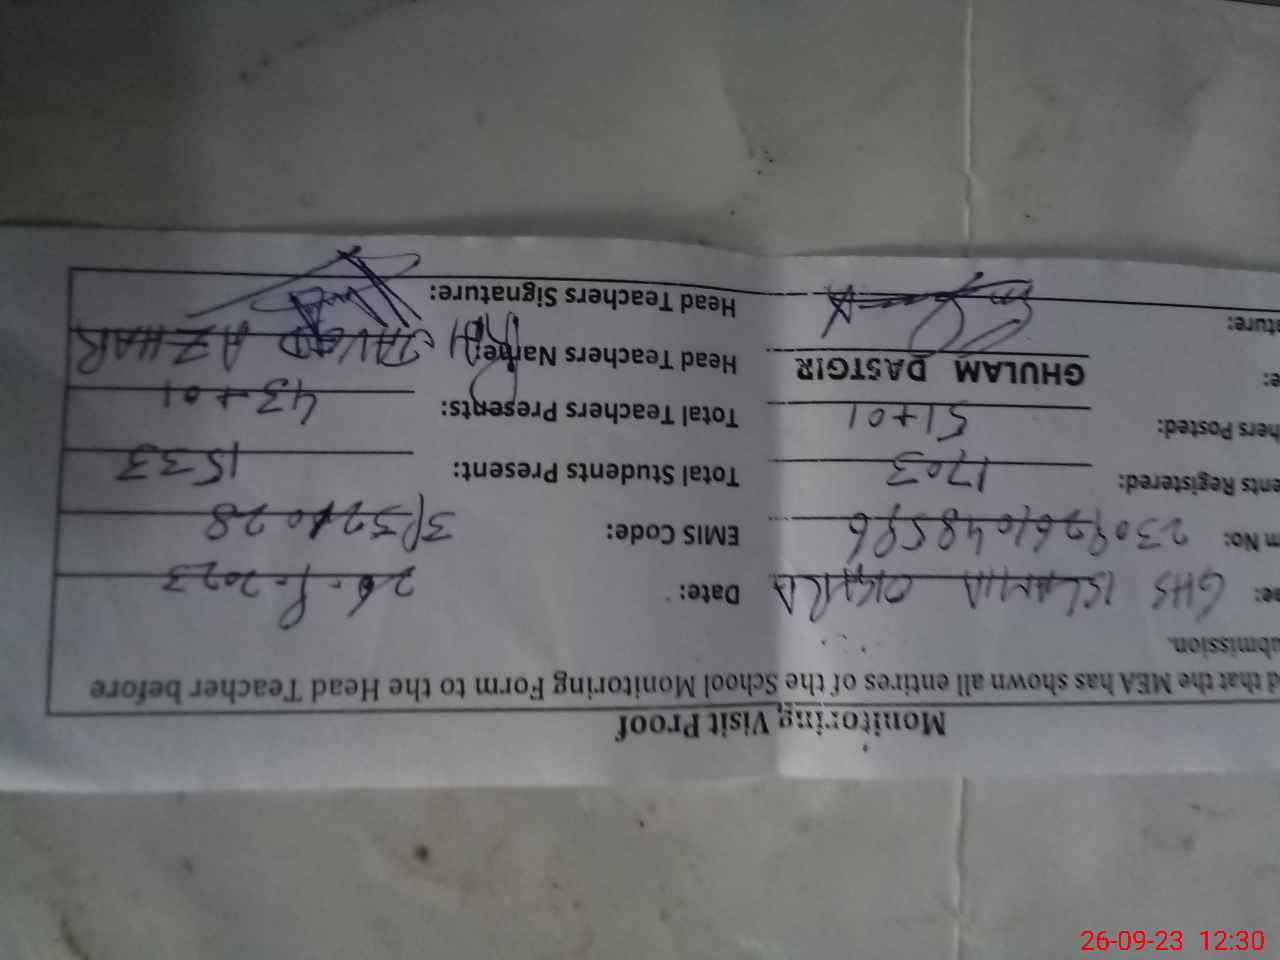 Monitoring Visit Proof
d that the MEA has shown all entires of the School Monitoring Form to the Head Teacher before
ubmission.
e: GHS ISLAMIA OKARA Date: 26-9-2023
m No: EMIS Code:
ents Registered: 1703 Total Students Present: 1533
hers Posted: 51+01 Total Teachers Presents: 43+01
e: GHULAM DASTGIR Head Teachers Name: JAVED AZHAR
ture: Head Teachers Signature:
26-09-23 12:30